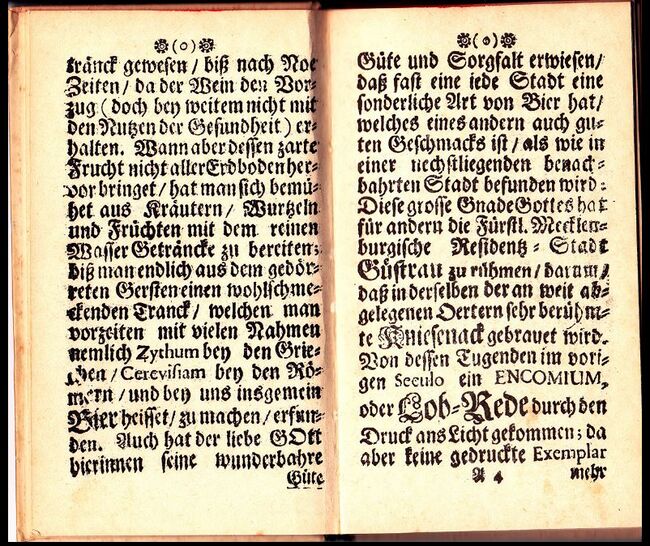 (o)
tränck gewesen / biß nach Noe
Zeiten / da der Wein den Vor-
zug (doch bey weitem nicht mit
den Nutzen der Gesundheit) er-
halten. Wann aber dessen zarte
Frucht nicht aller Erdboden her-
vor bringet / hat man sich bemü-
het aus Kräutern / Wurtzeln
und Früchten mit dem reinen
Wasser Geträncke zu bereiten;
biß man endlich aus dem gedör-
reten Gersten einen wohlschme-
ckenden Tranck / welchen man
vorzeiten mit vielen Nahmen
nemlich Zythum bey den Grie-
chen / Cerevisiam bey den Rö-
mern / und bey uns insgemein
Bier heisset / zu machen / erfun-
den. Auch hat der liebe GOtt
hierinnen seine wunderbahre
Güte
(o)
Güte und Sorgfalt erwiesen /
daß fast eine iede Stadt eine
sonderliche Art von Bier hat /
welches eines andern auch gu-
ten Geschmacks ist / als wie in
einer nechstliegenden benach-
bahrten Stadt befunden wird:
Diese grosse Gnade Gottes hat
für andern die Fürstl. Mecklen-
burgische Residentz-Stadt
Güstrau zu rühmen / darum /
daß in derselben der an weit ab-
gelegenen Oertern sehr berühm-
te Kniesenack gebrauet wird.
Von dessen Tugenden im vori-
gen Seculo ein ENCOMIUM,
oder Lob-Rede durch den
Druck ans Licht gekommen; da
aber keine gedruckte Exemplar
A 4 mehr